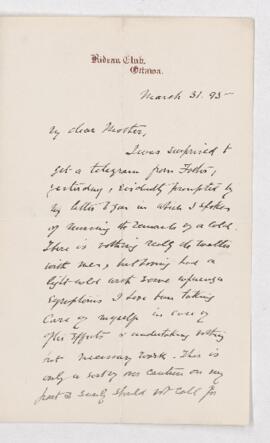 Rideau Club,
Ottawa.
March 31. 95
My dear Mother,
I was surprised to
get a telegram from Father,
yesterday, evidently prompted by
my letter to you in which I spoke
of nursing the remains of a cold.
There is nothing really the matter
with me, but having had a
light cold with some
symptoms I have been taking
care of myself in case of
after effects & undertaking nothing
but necessary work. This is
only a sort of over caution on my
part & surely should not call for